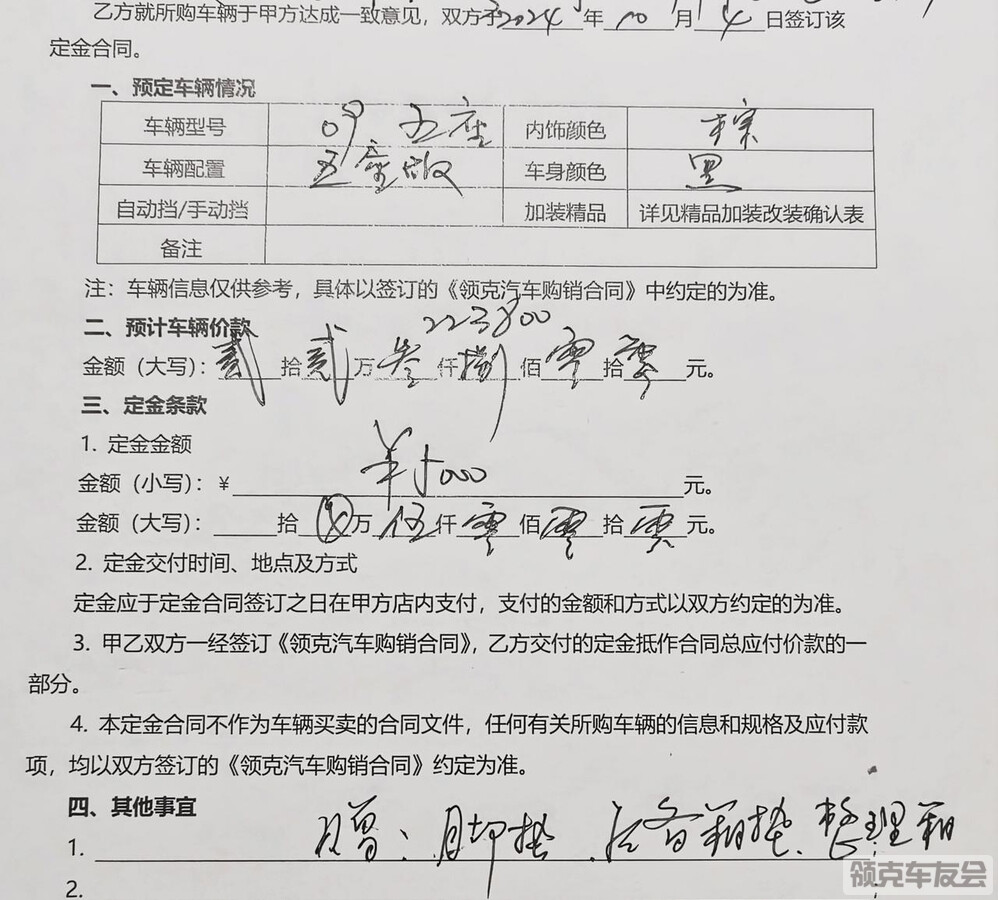 乙方就所购车辆于甲方达成一致意见，双方于2024年10月4日签订该
定金合同。
一、预定车辆情况
车辆型号 09 五座 内饰颜色 棕
车辆配置 五座版 车身颜色 黑
自动挡/手动挡 加装精品 详见精品加装改装确认表
备注
注：车辆信息仅供参考，具体以签订的《领克汽车购销合同》中约定的为准。
二、预计车辆价款 223800
金额（大写）：贰拾贰万叁仟捌佰零拾零元。
三、定金条款
1. 定金金额
金额（小写）：￥ 000元。
金额（大写）：拾万伍仟零佰零拾零元。
2. 定金交付时间、地点及方式
定金应于定金合同签订之日在甲方店内支付，支付的金额和方式以双方约定的为准。
3. 甲乙双方一经签订《领克汽车购销合同》，乙方交付的定金抵作合同总应付价款的一
部分。
4. 本定金合同不作为车辆买卖的合同文件，任何有关所购车辆的信息和规格及应付款
项，均以双方签订的《领克汽车购销合同》约定为准。
四、其他事宜
1. 赠：脚垫、后备箱垫、整理箱
2.
领克车友会